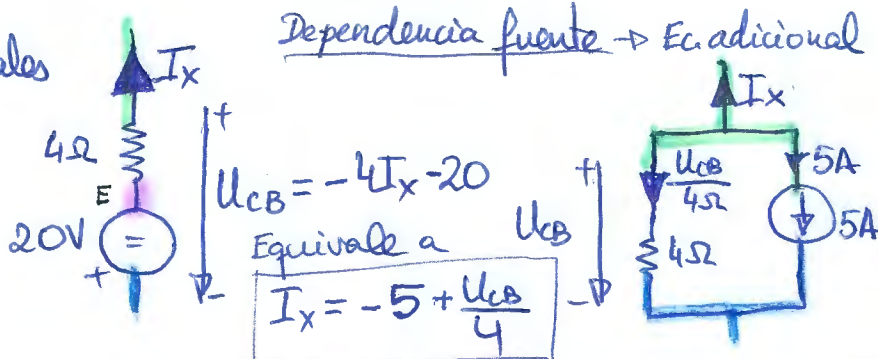 Dependencia fuente → Ec. adicional
ales
Ix
4Ω
E
20V
=
+
+
-
UCB = -4Ix-20
Equivale a
Ix = -5 + UCB/4
UCB
+
-
Ix
UCB/4Ω
4Ω
5A
5A